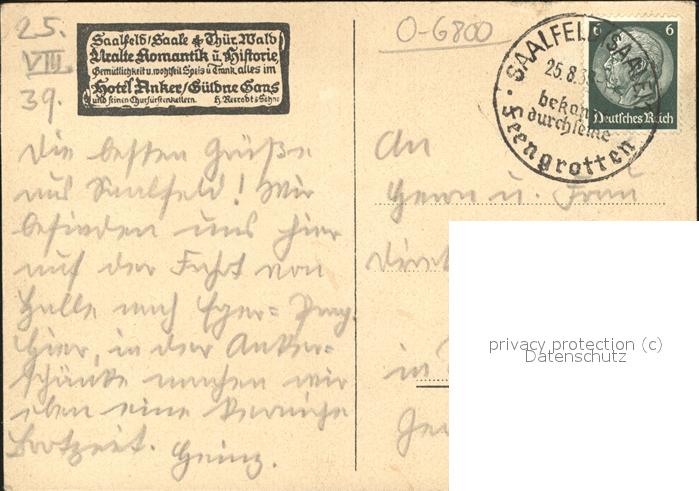 25.
VIII.
39.
Saalfeld/Saale & Thür. Wald
Uralte Romantik u. Historie,
Gemütlichkeit u. wohlfeil Speis u. Trank, alles im
Hotel Anker/Güldne Gans
und seinen Churfürstenkellern. H.
& Söhne
O-6800
SAALFELD (SAALE)
25.8.39
bekan
durch seine
Feengrotten
6 6
Deutsches Reich
Die besten Grüße
aus Saalfeld! Wir
befinden uns hier
auf der Fahrt von
Halle nach Eger-Prag.
Hier, in der Anker-
schänke machen wir
eben eine
Brotzeit. Heinz.
An
Herrn u. Frau
Direkt
in
privacy protection (c)
Datenschutz